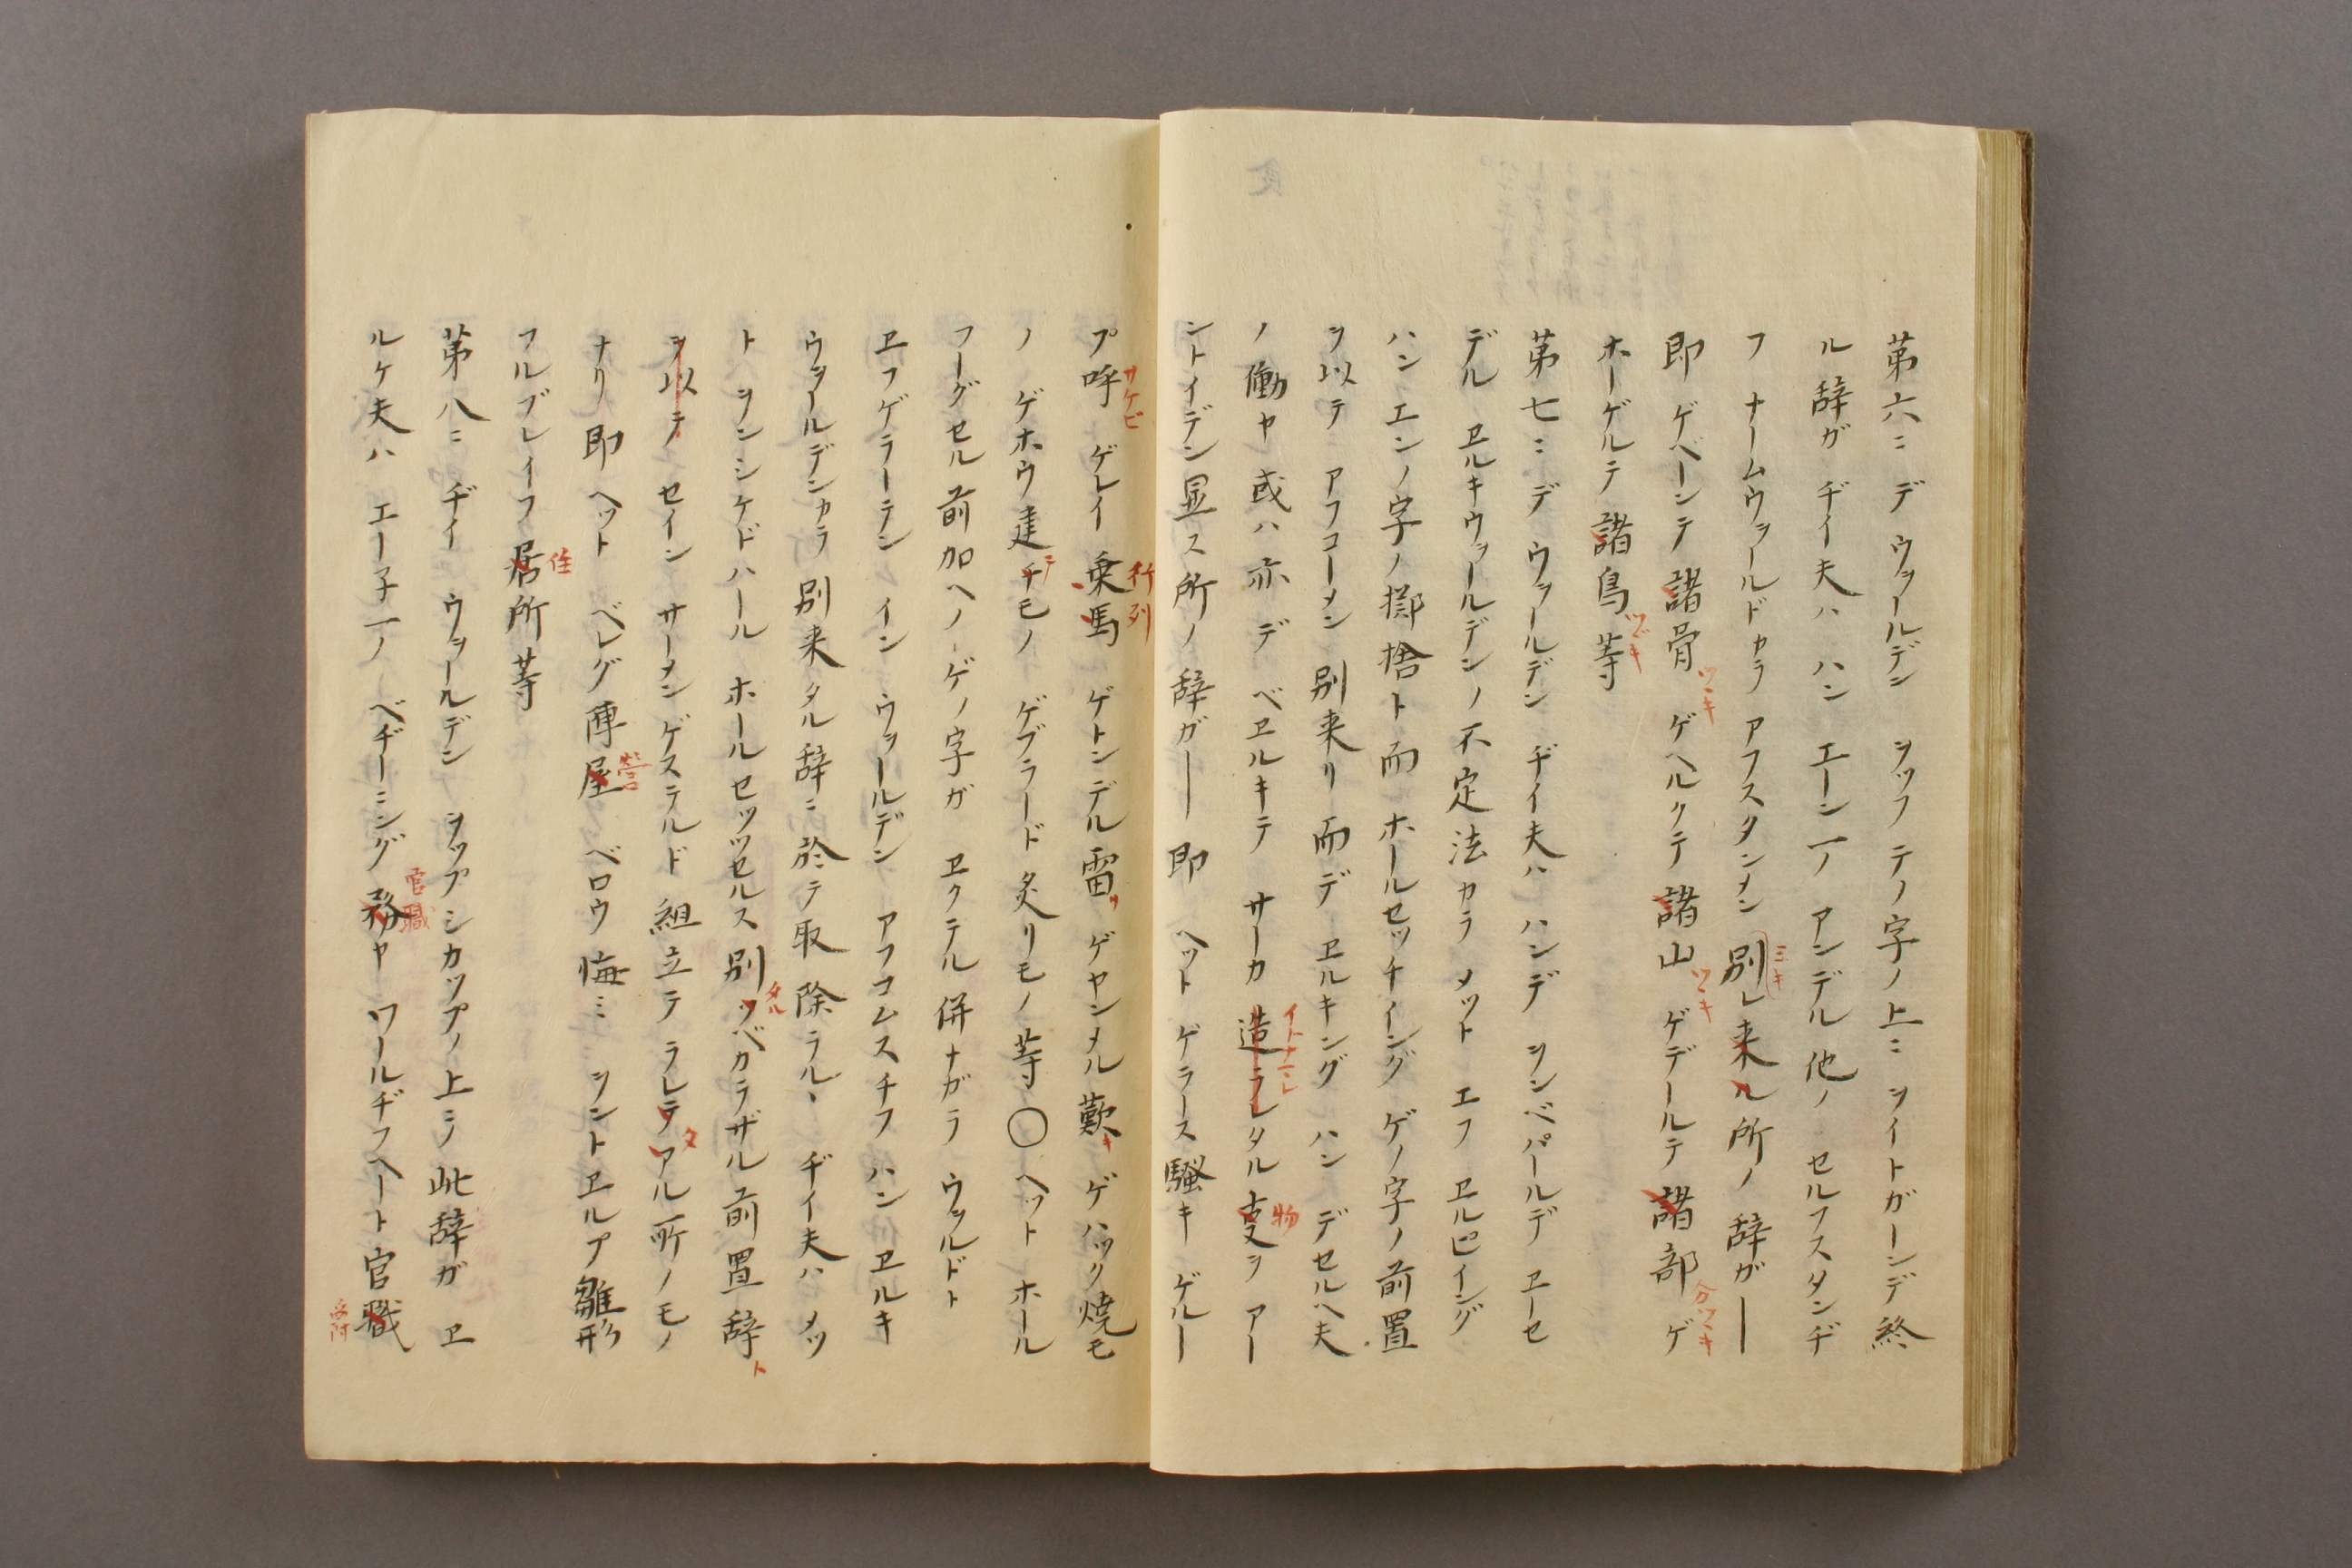 第六ニ デ ウヲールデン ヲツフ テノ字ノ上ニ ヲイトガーンデ 終
ル辞ガ ヂイ夫ハ ハン エーン一ノ アンデル他ノ セルフスタンヂ
フ ナームウヲールドカラ アフスタンメン 別レ来ル所ノ 辞ガ—
即 ゲベーンテ諸骨 ゲヘルクテ諸山 ゲデールテ諸部 ゲ
ホーゲルテ諸鳥等
第七ニ デ ウヲールデン ヂイ夫ハ ハンデ ヲンベパールデ ヱーセ
デル ヱルキウヲールデンノ不定法カラ メット エフ ヱルピイング
ハン エンノ字ノ擲捨ト而 ホールセッチイング ゲノ字ノ前置
ヲ以テ アフコーメン 別来リ而デ ヱルキング ハン デセルヘ夫
ノ働ヤ或ハ亦 デ ベヱルキテ サーカ 造ラレタル叓ヲ アー
ントイデン 显ス所ノ辞ガ— 即 ヘット ゲラース騒キ ゲルー
プ呼 ゲレイ 乗馬 ゲトンデル雷 ゲヤンメル歎 ゲハック焼モ
ノ ゲホウ建チモノ ゲブラード炙リモノ等〇ヘット ホール
フーグセル前加ヘノ ゲノ字ガ ヱクテル併ナガラ ウヲルドト
ヱフゲラーテン イン ウヲールデン アフコムスチフ ハン ヱルキ
ウヲールデンカラ 別来タル辞ニ於テ取除ラルヽ ヂイ夫ハ メツ
ト ヲンシケドハール ホールセッツセルス別ツベカラザル前置辞
ヲ以テ セイン サーメンゲステルド 組立テラレテアル所ノモノ
ナリ 即 ヘット ベレグ陣屋 ベロウ悔ミ ヲントヱルプ雛形
フルブレイフ居所等
第八ニ ヂイ ウヲールデン ヲップシカップノ上ニノ 此辞ガ ヱ
ルケ夫ハ エー子一ノ ベヂーニング務ヤ ワールヂフヘート官職
サケビ
行列
ミキ
ツヾキ
ツヾキ
物
営
住
官職
タル
ト